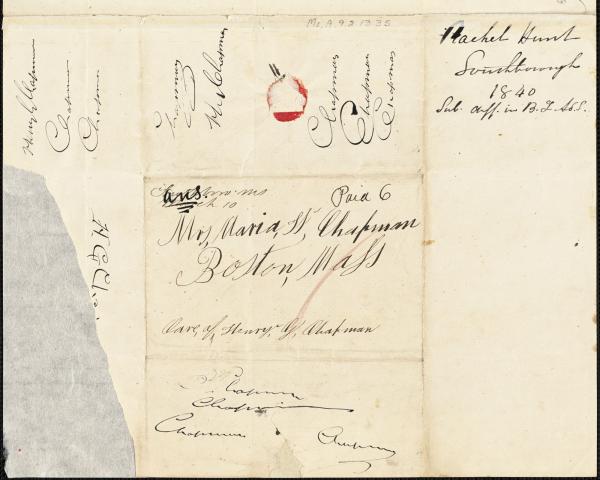 Ms. A. 9.2 13.35
Rachel Hunt
Southborough
1840
Sub. aff. in B. F. Ass.
Henry G Chapman
Chapman
Chapman
Chapman
Chapman
Chapman
Chapman
Chapman
ans.
March 10
Paid 6
Mrs. Maria, W, Chapman
Boston, Mass
Care, of, Henry, G, Chapman
Chapman
Chapman
Chapman
Chapman